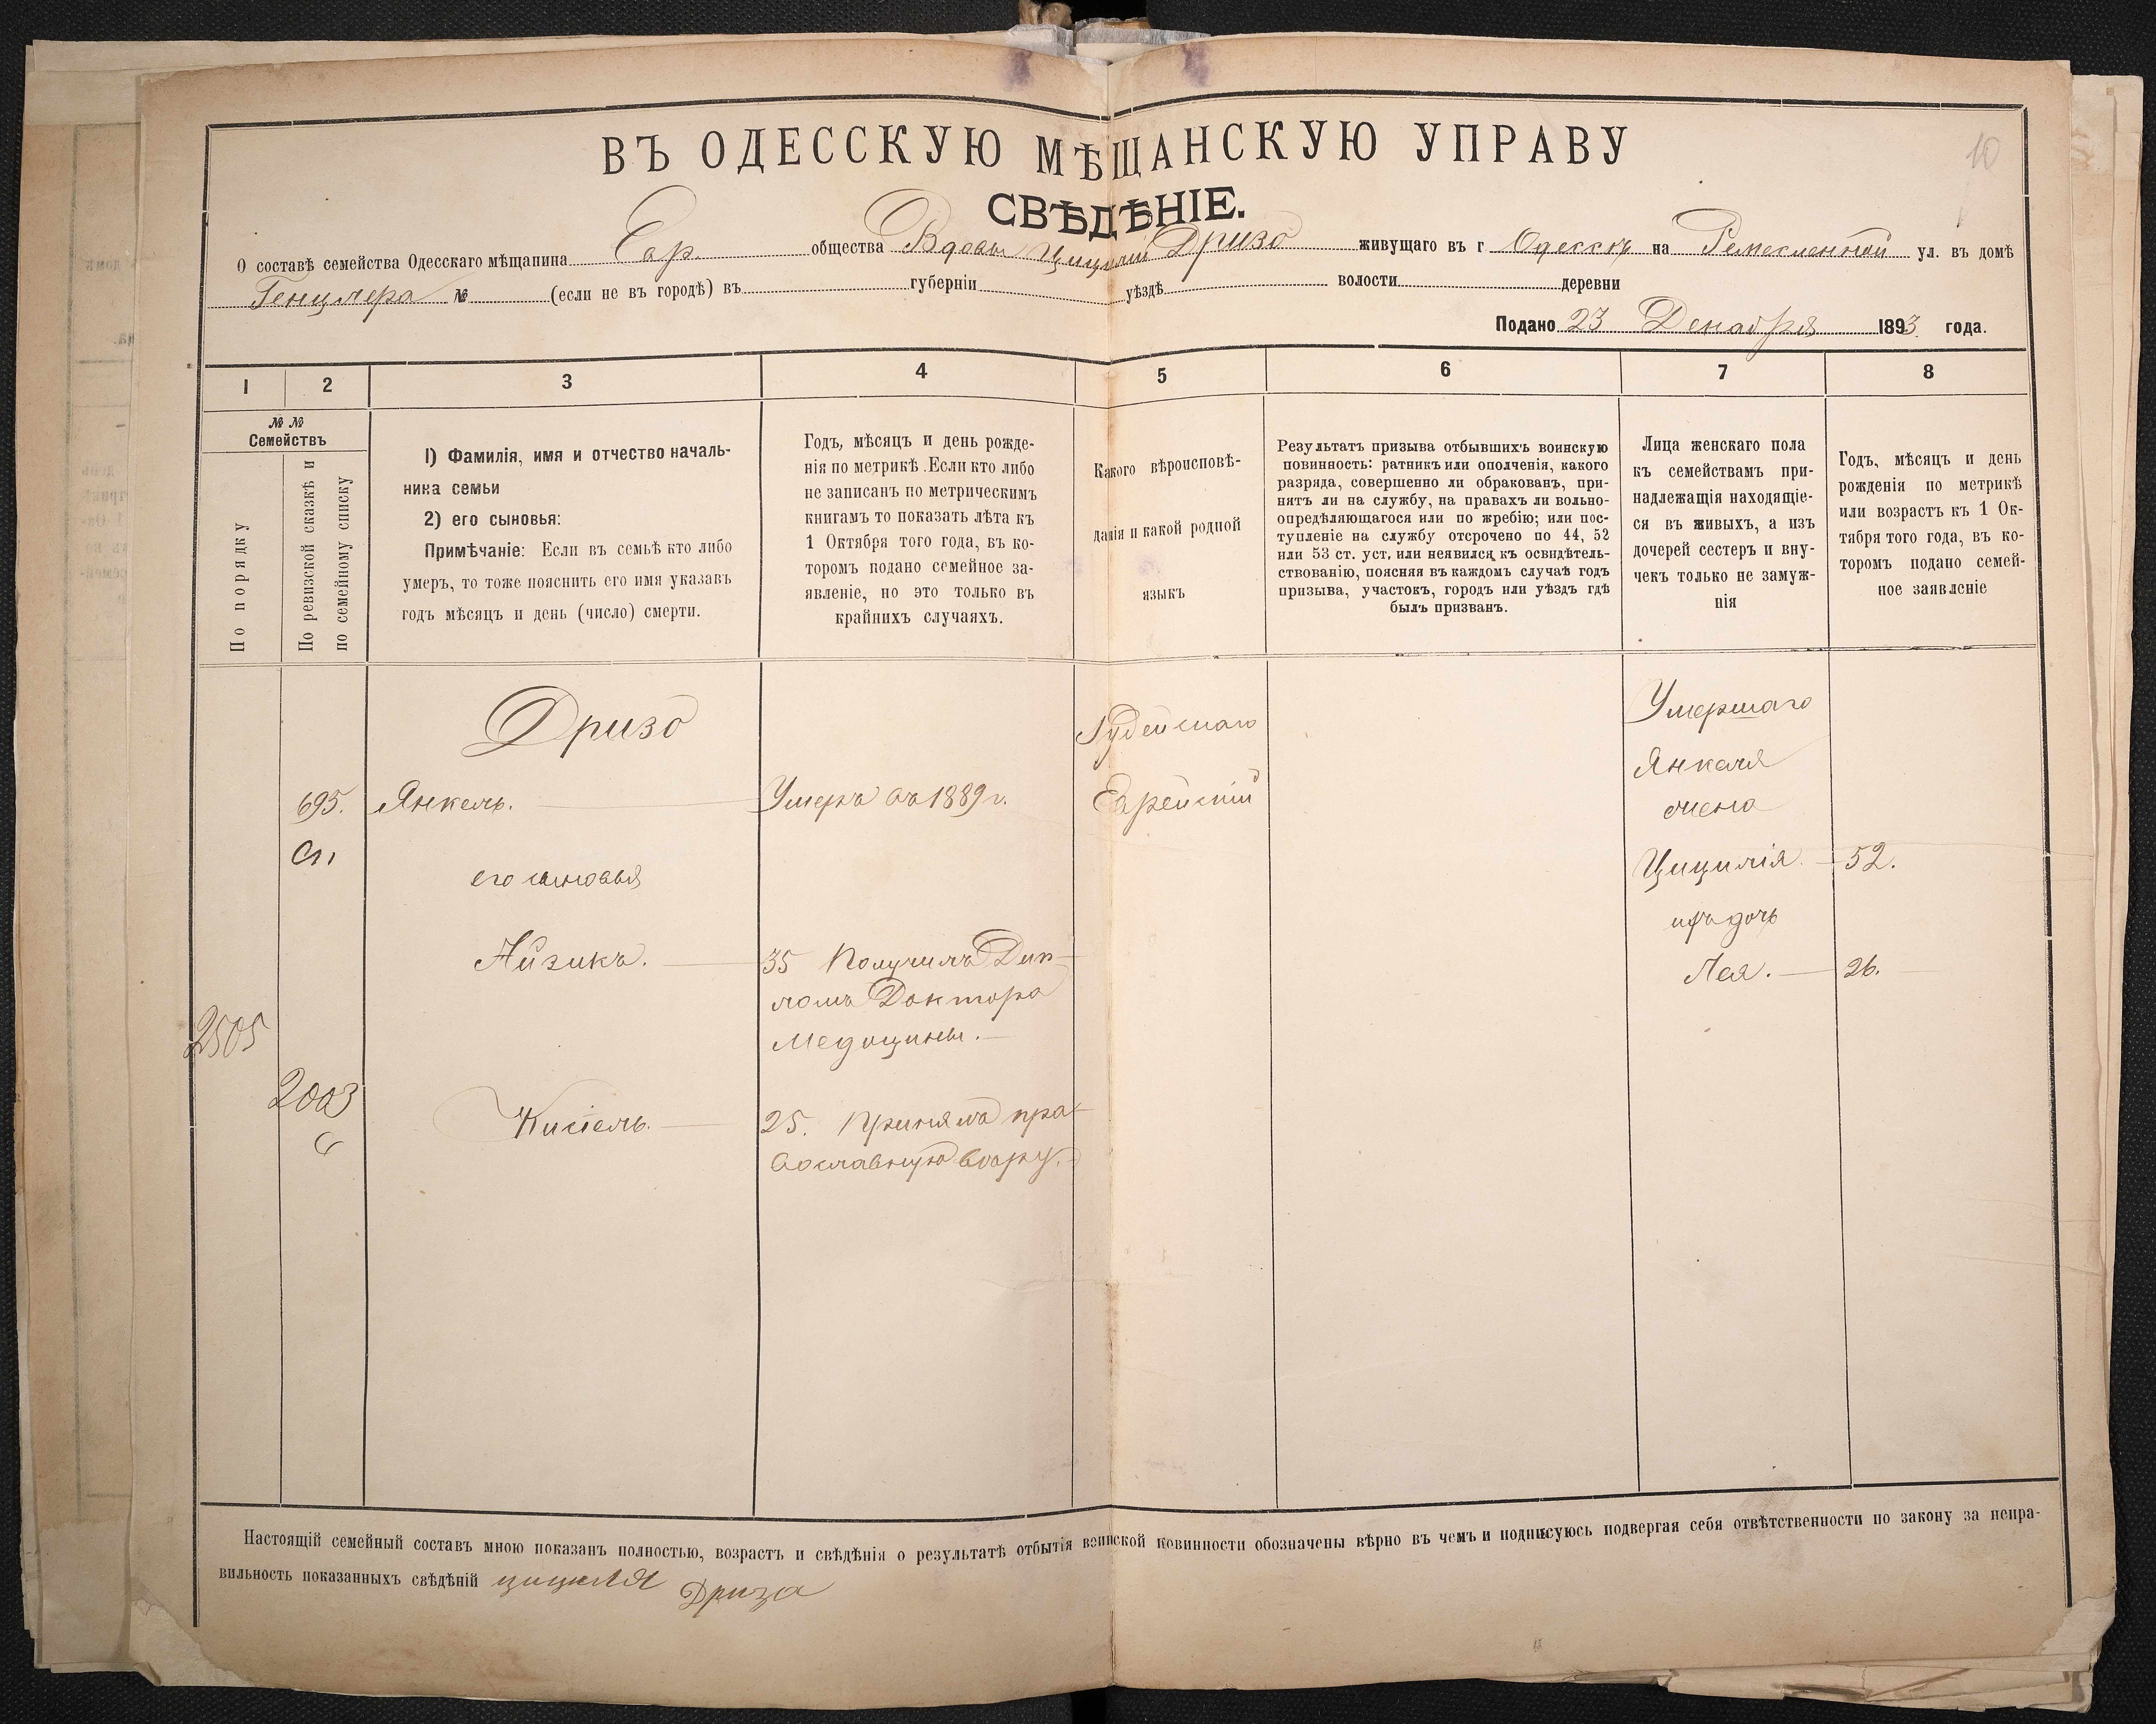 10
ВЪ ОДЕССКУЮ МѢЩАНСКУЮ УПРАВУ
СВѢДѢНІЕ.
О составѣ семейства Одесскаго мѣщанина Евр. общества Вдовы Цициліи Дризо живущаго въ г Одессѣ на Ремесленной ул. въ домѣ
Генцлера № (если не въ городѣ) въ губерніи уѣздѣ волости деревни
Подано 23 Декабря 1893 года.
1 2 3 4 5 6 7 8
№ №
Семействъ
По порядку
По ревизской сказкѣ и
по семейному списку
1) Фамилія, имя и отчество началь-
ника семьи
2) его сыновья:
Примѣчаніе: Если въ семьѣ кто либо
умеръ, то тоже пояснить его имя указавъ
годъ мѣсяцъ и день (число) смерти.
Годъ, мѣсяцъ и день рожде-
нія по метрикѣ. Если кто либо
не записанъ по метрическимъ
книгамъ то показать лѣта къ
1 Октября того года, въ ко-
торомъ подано семейное за-
явленіе, но это только въ
крайнихъ случаяхъ.
Какого вѣроисповѣ-
данія и какой родной
языкъ
Результатъ призыва отбывшихъ воинскую
повинность: ратникъ или ополченія, какого
разряда, совершенно ли обракованъ, при-
нятъ ли на службу, на правахъ ли вольно-
опредѣляющагося или по жребію; или пос-
тупленіе на службу отсрочено по 44, 52
или 53 ст. уст. или неявился къ освидѣтель-
ствованію, поясняя въ каждомъ случаѣ годъ
призыва, участокъ, городъ или уѣздъ гдѣ
былъ призванъ.
Лица женскаго пола
къ семействамъ при-
надлежащія находящіе-
ся въ живыхъ, а изъ
дочерей сестеръ и вну-
чекъ только не замуж-
нія
Годъ, мѣсяцъ и день
рожденія по метрикѣ
или возрастъ къ 1 Ок-
тября того года, въ ко-
торомъ подано семей-
ное заявленіе
Дризо
695. Янкель. Умеръ въ 1889 г.
его сыновья
Айзикъ. 35 Получилъ Дип-
ломъ Доктора
Медицины.
2505
2003
Кисіель. 25. Принялъ пра-
вославную вѣру.
Іудейскаго
Еврейскій
Умершаго
Янкеля
жена
Цицилія. 52.
ихъ дочь
Лея. 26.
Настоящій семейный составъ мною показанъ полностью, возрастъ и свѣдѣнія о результатѣ отбытія воинской повинности обозначены вѣрно въ чемъ и подписуюсь подвергая себя отвѣтственности по закону за непра-
вильность показанныхъ свѣдѣній цициля Дриза